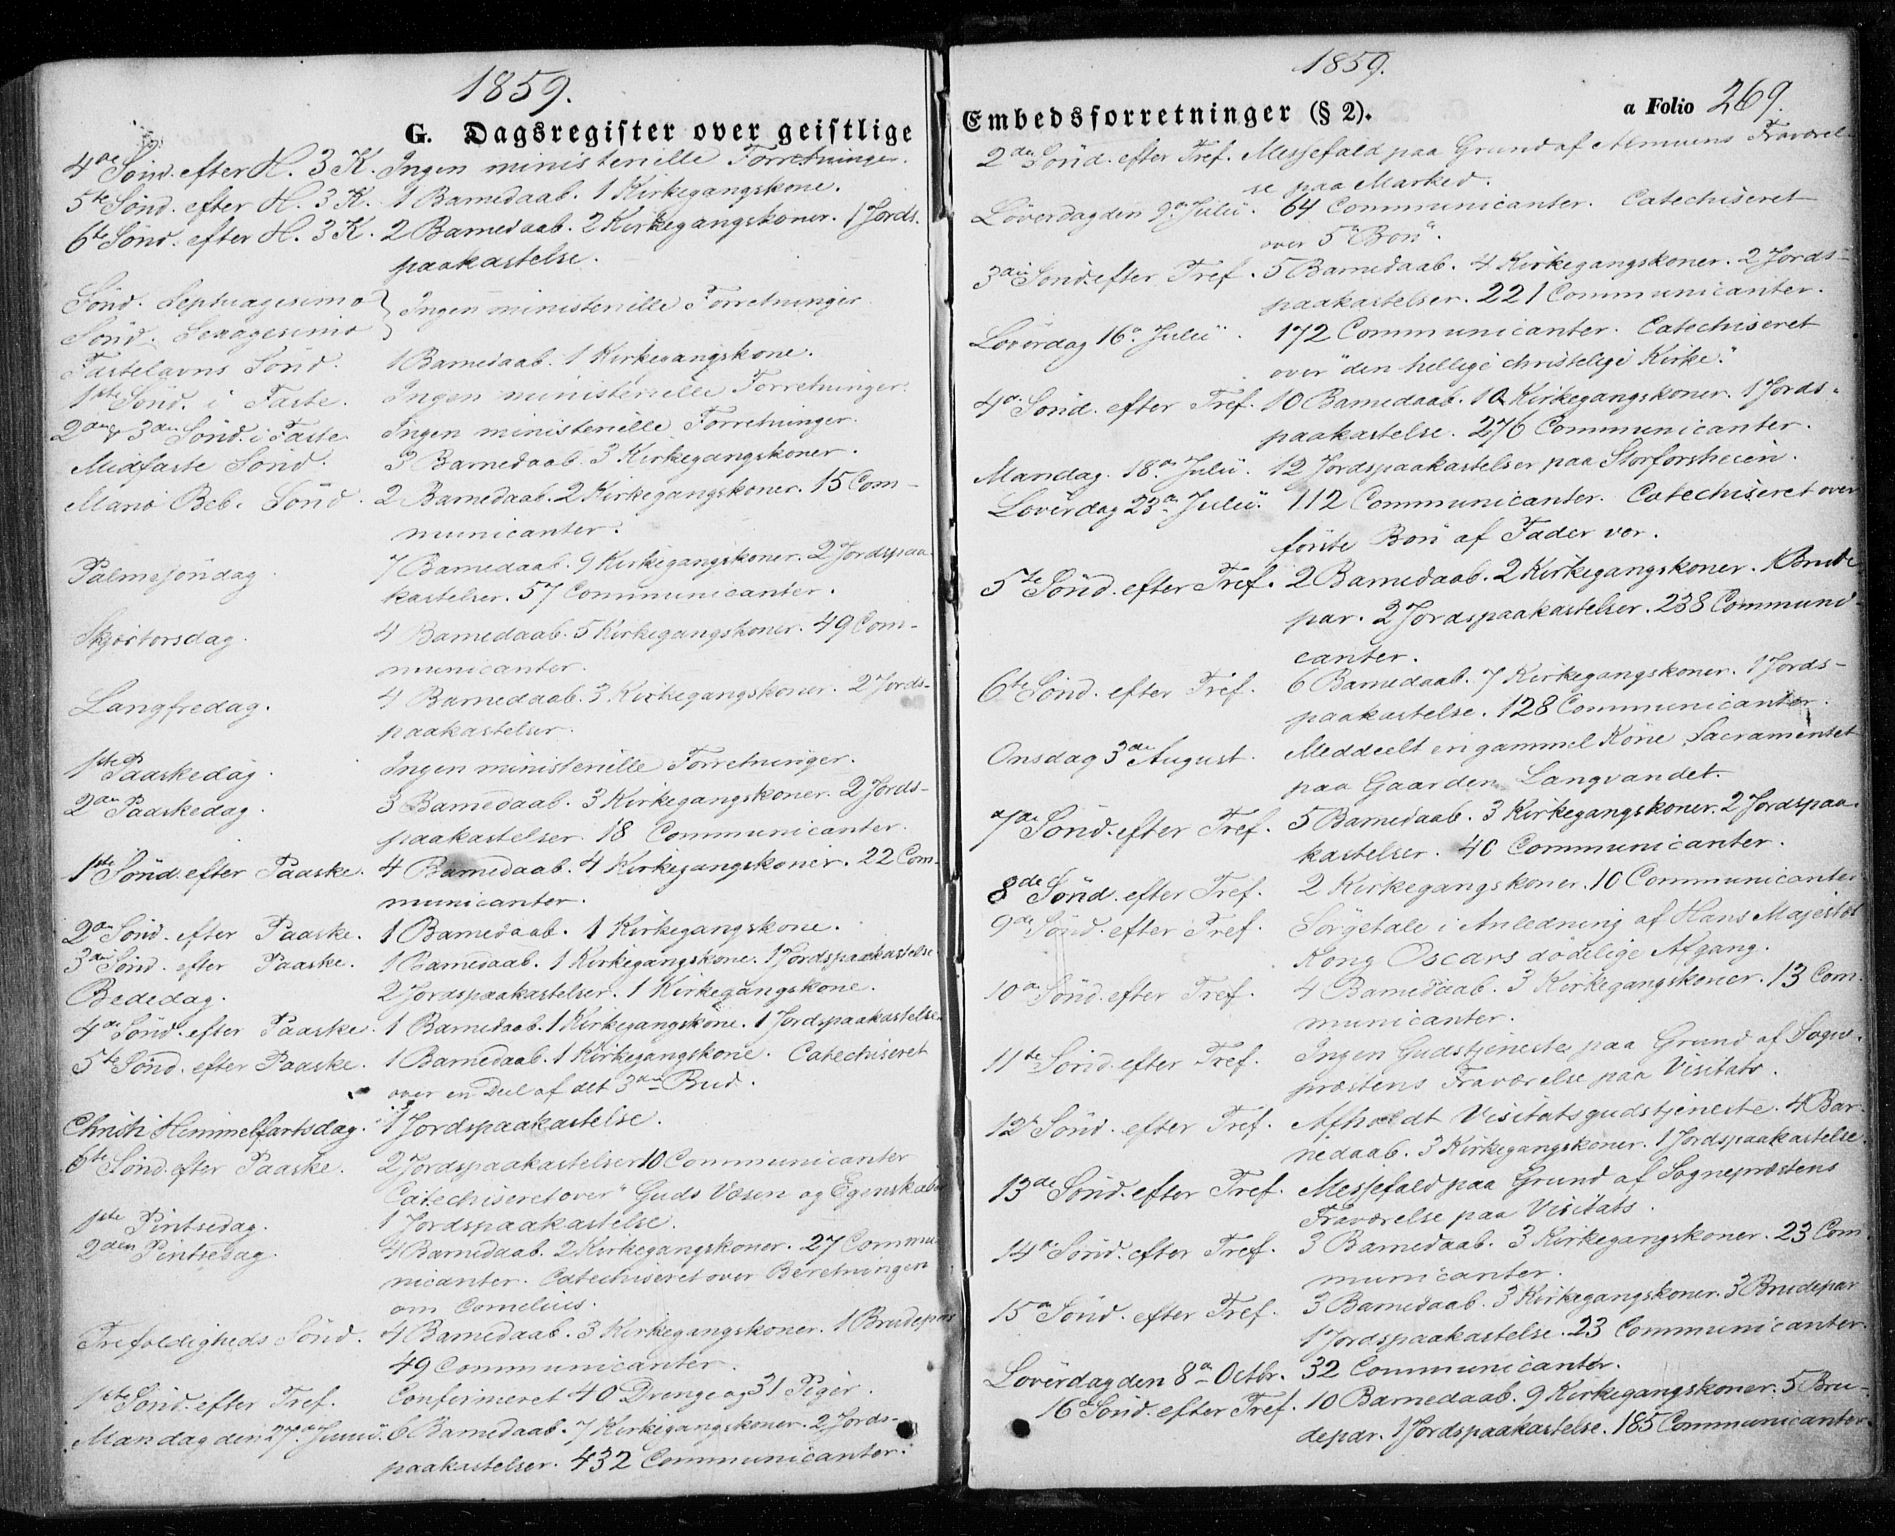 1859.
G. Dagsregister over geistlige
4de Sönd. efter H. 3 K. Ingen ministerielle Forretninger.
5te Sönd. efter H. 3 K. 1 Barnedaab. 1 Kirkegangskone.
6te Sönd. efter H. 3 K. 2 Barnedaab. 2 Kirkegangskoner. 1 Jords-
paakastelse.
Sönd. Septuagesima } Ingen ministerielle Forretninger.
Sönd. Sexagesima
Fastelavns Sönd. 1 Barnedaab. 1 Kirkegangskone.
1ste Sönd. i Faste. Ingen ministerielle Forretninger.
2den & 3die Sönd. i Faste Ingen ministerielle Forretninger.
Midfaste Sönd. 3 Barnedaab. 3 Kirkegangskoner.
Mariæ Beb. Sönd. 2 Barnedaab. 2 Kirkegangskoner. 15 Com-
municanter.
Palmesöndag. 7 Barnedaab. 9 Kirkegangskoner. 2 Jordspaa-
kastelser. 57 Communicanter.
Skjærtorsdag. 4 Barnedaab. 5 Kirkegangskoner. 49 Com-
municanter.
Langfredag. 4 Barnedaab. 3 Kirkegangskoner. 2 Jords-
paakastelser.
1ste Paaskedag. Ingen ministerielle Forretninger.
2den Paaskedag. 3 Barnedaab. 3 Kirkegangskoner. 2 Jords-
paakastelser. 18 Communicanter.
1ste Sönd. efter Paaske. 4 Barnedaab. 4 Kirkegangskoner. 22 Com-
municanter.
2den Sönd. efter Paaske. 1 Barnedaab. 1 Kirkegangskone.
3die Sönd. efter Paaske. 1 Barnedaab. 1 Kirkegangskone. 1 Jordspaakastelse
Bededag. 2 Jordspaakastelser. 1 Kirkegangskone.
4de Sönd. efter Paaske. 1 Barnedaab. 1 Kirkegangskone. 1 Jordspaakastelse.
5te Sönd. efter Paaske. 1 Barnedaab. 1 Kirkegangskone. Catechiseret
over en Deel af det 3die Bud.
Christi Himmelfartsdag. 1 Jordspaakastelse.
6te Sönd. efter Paaske. 2 Jordspaakastelser 10 Communicanter
Catechiseret over "Guds Væsen og Egenskaber
1ste Pintsedag. 1 Jordspaakastelse.
2den Pintsedag. 4 Barnedaab. 2 Kirkegangskoner. 27 Commu-
nicanter. Catechiseret over Beretningen
om Cornelius.
Trefoldigheds Sönd. 4 Barnedaab. 3 Kirkegangskoner. 1 Brudepar
49 Communicanter.
1ste Sönd. efter Tref. Confirmeret 40 Drenge og 31 Piger.
Mandag den 27de Junii. 6 Barnedaab. 7 Kirkegangskoner. 2 Jords-
paakastelser. 432 Communicanter.
1859.
Embedsforretninger (§ 2). a Folio 269.
2den Sönd. efter Tref. Messefald paa Grund af Almuens Fraværel-
se paa Marked.
Löverdag den 9de Julii. 64 Communicanter. Catechiseret
over 5te Bön.
3die Sönd. efter Tref. 5 Barnedaab. 4 Kirkegangskoner. 2 Jords-
paakastelser. 221 Communicanter.
Löverdag 16de Julii. 172 Communicanter. Catechiseret
over "den hellige christelige Kirke."
4de Sönd. efter Tref. 10 Barnedaab. 10 Kirkegangskoner. 1 Jords-
paakastelse. 276 Communicanter.
Mandag. 18de Julii. 12 Jordspaakastelser paa Storforsheien.
Löverdag 23de Julii. 112 Communicanter. Catechiseret over
förste Bön af Fader vor.
5te Sönd. efter Tref. 2 Barnedaab. 2 Kirkegangskoner. 1 Brude-
par. 2 Jordspaakastelser. 238 Communi-
canter.
6te Sönd. efter Tref. 6 Barnedaab. 7 Kirkegangskoner. 1 Jords-
paakastelse. 128 Communicanter.
Onsdag 3die August. Meddeelt en gammel Kone Sacramentet
paa Gaarden Langvandet.
7de Sönd. efter Tref. 5 Barnedaab. 3 Kirkegangskoner. 2 Jordspaa-
kastelser. 40 Communicanter.
8de Sönd. efter Tref. 2 Kirkegangskoner. 10 Communicanter
9de Sönd. efter Tref. Sörgetale i Anledning af Hans Majestæt
Kong Oscars dödelige Afgang.
10de Sönd. efter Tref. 4 Barnedaab. 3 Kirkegangskoner. 13 Com-
municanter.
11te Sönd. efter Tref. Ingen Gudstjeneste paa Grund af Sogne-
præstens Fraværelse paa Visitats.
12te Sönd. efter Tref. Afholdt Visitatsgudstjeneste. 4 Bar-
nedaab. 3 Kirkegangskoner. 1 Jordspaakastelse.
13de Sönd. efter Tref. Messefald paa Grund af Sognepræstens
Fraværelse paa Visitats.
14de Sönd. efter Tref. 3 Barnedaab. 3 Kirkegangskoner. 23 Com-
municanter.
15de Sönd. efter Tref. 3 Barnedaab. 3 Kirkegangskoner. 3 Brudepar
1 Jordspaakastelse. 23 Communicanter.
Löverdag den 8de Octbr. 32 Communicanter.
16de Sönd. efter Tref. 10 Barnedaab. 9 Kirkegangskoner. 5 Bru-
depar. 1 Jordspaakastelse. 185 Communicanter.